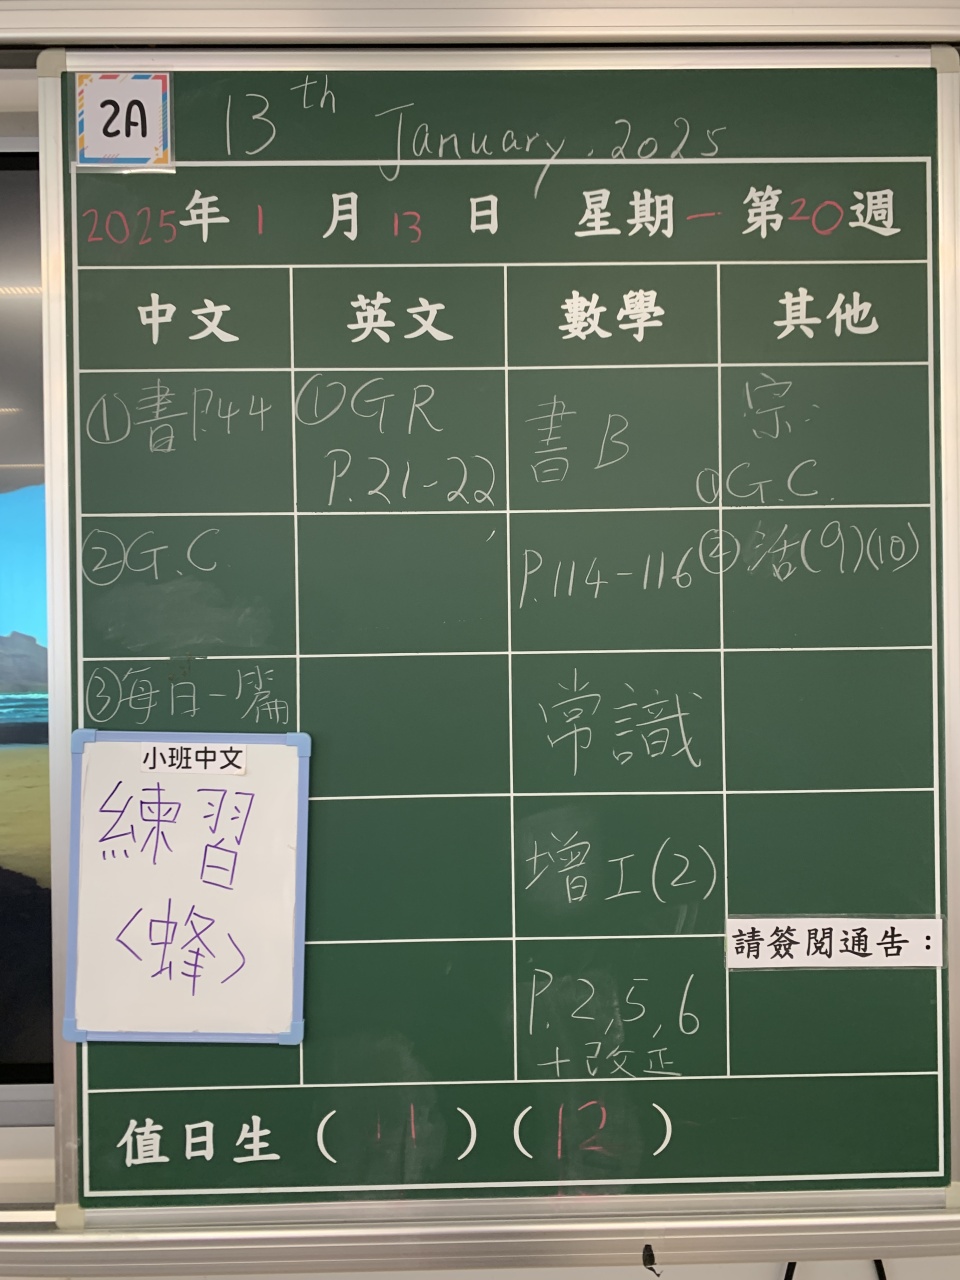 2A
13th January. 2025
2025年1月13日 星期一 第20週
中文 英文 數學 其他
①書P.44
②G.C
③每日一篇
小班中文
練習
〈蜂〉
①GR
P.21-22
書B
P.114-116
常識
增工(2)
P.2,5,6
+改正
宗:
①G.C.
②活(9)(10)
請簽閱通告：
值日生（11）（12）